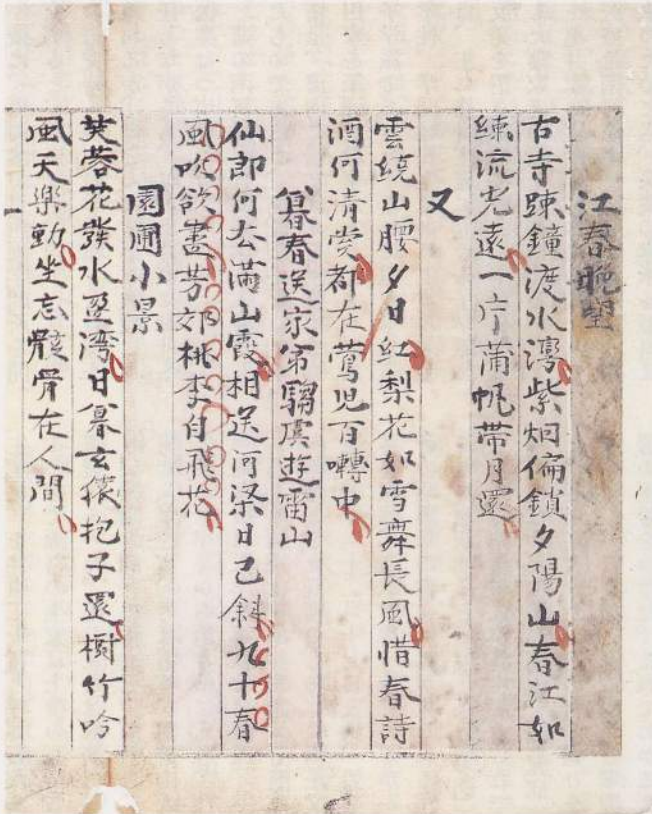 江春晩望
古寺踈鐘渡水灣紫烟偏鎖夕陽山春江如
練流光遠一片蒲帆帶月還
又
雲繞山腰夕日紅梨花如雪舞長風惜春詩
酒何清賞都在鶯児百囀中
暮春送家弟騶虞遊雷山
仙郎何去滿山霞相送河梁日已斜九十春
風吹欲盡芳郊桃李自飛花
園圃小景
芙蓉花發水盈湾日暮玄猿抱子還樹竹吟
風天樂動坐忘骸骨在人間